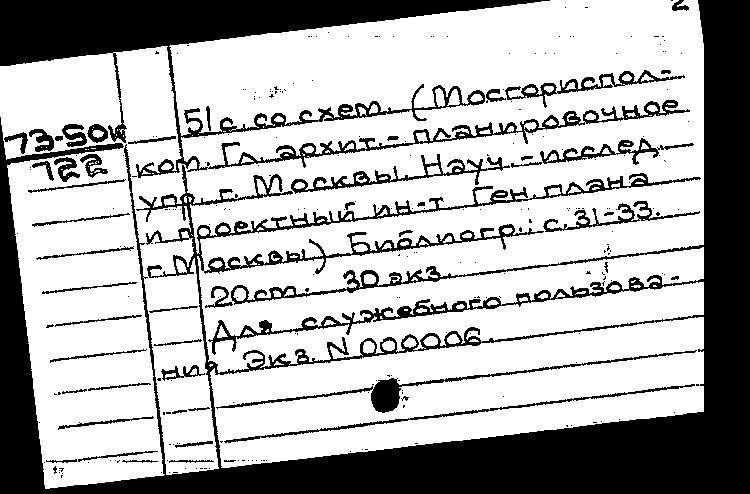 2
51 с. со схем. (Мосгориспол-
73-50к
722
ком. Гл. архит.- планировочное
упр. г. Москвы. Науч.-исслед.
и проектный ин-т Ген. плана
г. Москвы) Библиогр.: с. 31-33.
20 cm. 30 экз.
Для служебного пользова-
ния. Экз. N 000006.